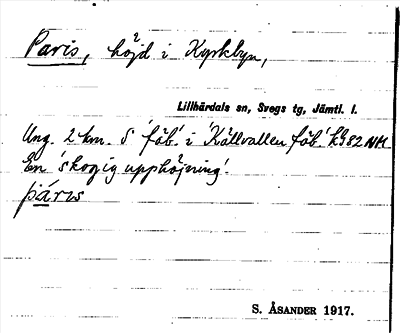 Paris, höjd i Kyrkbyn,
Lillhärdals sn, Svegs tg, Jämtl. l.
Ung. 2 km. S 'fäb.' i 'Källvallen fäb.' kS82NH
En 'skogig upphöjning'.
páris
S. ÅSANDER 1917.